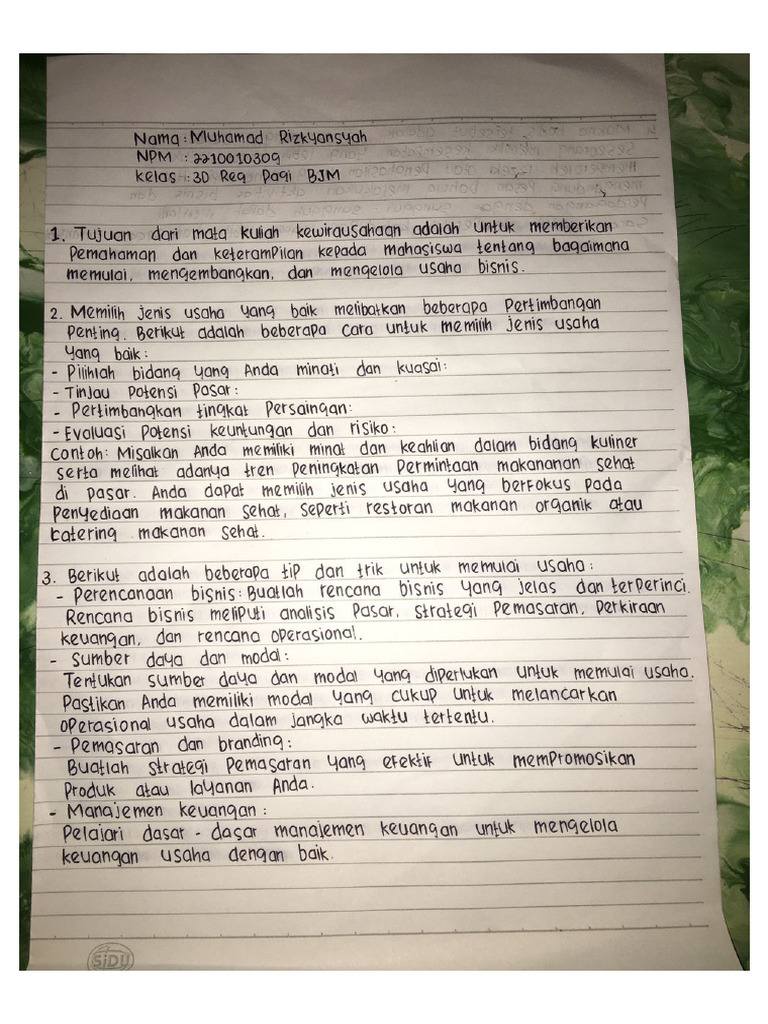 Nama : Muhamad Rizkyansyah
NPM : 2210010309
Kelas : 3D Reg Pagi BJM
1. Tujuan dari mata kuliah kewirausahaan adalah untuk memberikan
Pemahaman dan keterampilan kepada mahasiswa tentang bagaimana
memulai, mengembangkan, dan mengelola usaha bisnis.
2. Memilih jenis usaha yang baik melibatkan beberapa Pertimbangan
Penting. Berikut adalah beberapa cara untuk memilih jenis usaha
yang baik :
- Pilihlah bidang yang Anda minati dan kuasai:
- Tinjau Potensi Pasar:
- Pertimbangkan tingkat Persaingan:
- Evaluasi Potensi keuntungan dan risiko:
Contoh: Misalkan Anda memiliki minat dan keahlian dalam bidang kuliner
serta melihat adanya tren peningkatan Permintaan makananan sehat
di pasar. Anda dapat memilih jenis usaha yang berfokus pada
Penyediaan makanan sehat, seperti restoran makanan organik atau
katering makanan sehat.
3. Berikut adalah beberapa tip dan trik untuk memulai usaha :
- Perencanaan bisnis: Buatlah rencana bisnis yang jelas dan terperinci.
Rencana bisnis meliputi analisis Pasar, strategi Pemasaran, Perkiraan
keuangan, dan rencana operasional.
- Sumber daya dan modal:
Tentukan sumber daya dan modal yang diperlukan untuk memulai usaha.
Pastikan Anda memiliki modal yang cukup untuk melancarkan
operasional usaha dalam jangka waktu tertentu.
- Pemasaran dan branding :
Buatlah strategi Pemasaran yang efektif untuk mempromosikan
Produk atau layanan Anda.
- Manajemen keuangan :
Pelajari dasar - dasar manajemen keuangan untuk mengelola
keuangan usaha dengan baik.
SIDU